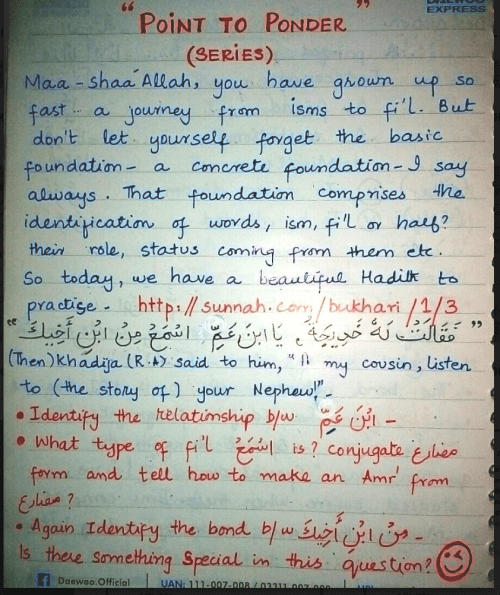 DAEWOO
EXPRESS
"POINT TO PONDER"
(SERIES)
Maa-shaa'Allah, you have grown up so
fast - a journey from isms to fi'l. But
don't let yourself forget the basic
foundation - a concrete foundation - I say
always. That foundation comprises the
identification of words, ism, fi'l or harf?
their role, status coming from them etc.
So today, we have a beautiful Hadith to
practise - http://sunnah.com/bukhari/1/3
"فَقَالَتْ لَهُ خَدِيجَةُ، يَا ابنَ عَمِّ اسْمَعْ مِنْ ابْنِ أَخِيكَ"
(Then) Khadija (R.A) said to him, " my cousin, listen
to (the story of) your Nephew!" -
• Identify the relationship b/w ابْنَ عَمِّ -
• What type of fi'l اسْمَعْ is? conjugate مضارع
form and tell how to make an Amr' from
مضارع ?
• Again Identify the bond b/w مِنْ ابْنِ أَخِيكَ -
Is there something special in this question?
f Daewoo.Official UAN: 111-007-008 /